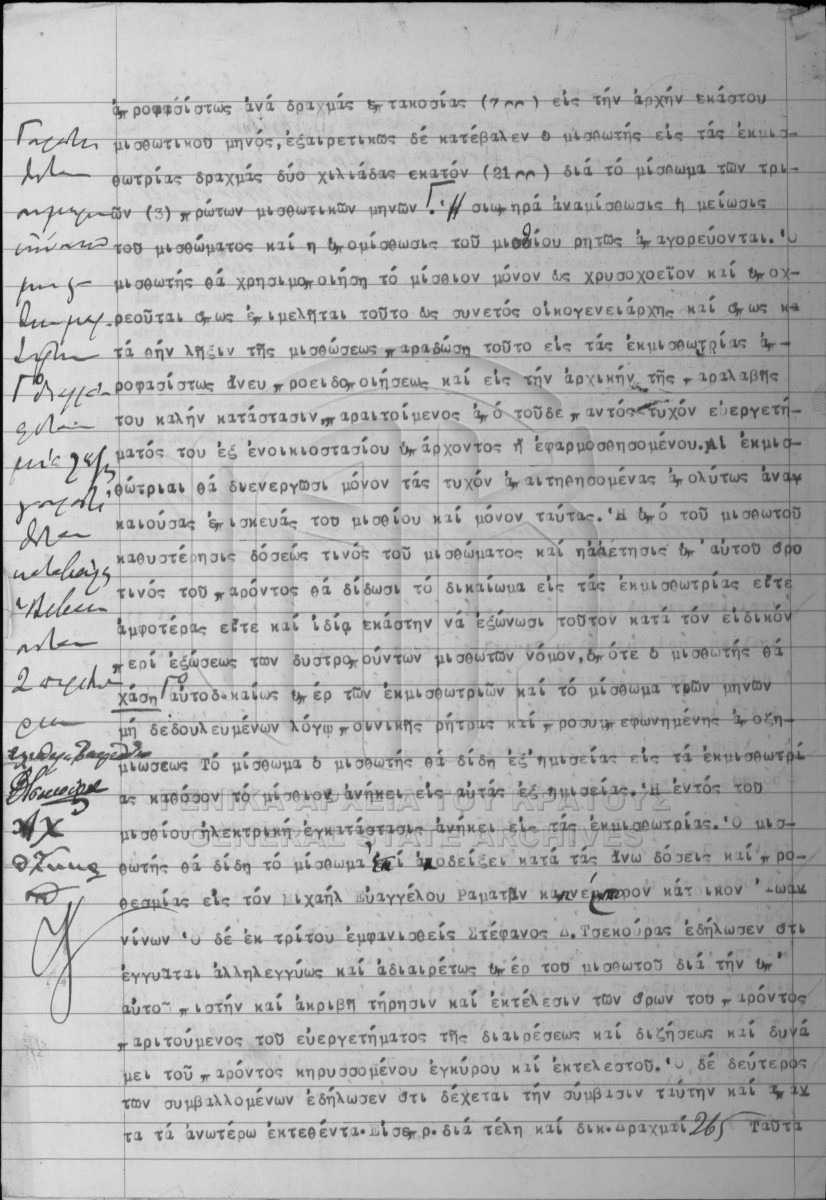 ἀπροφασίστως ἀνά δραχμάς ἑπτακοσίας (700) εἰς τήν ἀρχήν ἑκάστου
μισθωτικοῦ μηνός, ἐξαιρετικῶς δέ κατέβαλεν ὁ μισθωτής εἰς τάς ἐκμισ-
θωτρίας δραχμάς δύο χιλιάδας ἑκατόν (2100) διά τό μίσθωμα τῶν τρι-
ῶν (3) πρώτων μισθωτικῶν μηνῶν Γ. Ἡ σιωπηρά ἀναμίσθωσις ἤ μείωσις
τοῦ μισθώματος καί η ὑπομίσθωσις τοῦ μισθίου ρητῶς ἀπαγορεύονται. Ὁ
μισθωτής θά χρησιμοποιήση τό μίσθιον μόνον ὡς χρυσοχοεῖον καί ὑποχ-
ρεοῦται ὅπως ἐπιμελῆται τοῦτο ὡς συνετός οἰκογενειάρχης καί ὅπως κα
τά θήν λῆξιν τῆς μισθώσεως παραδώση τοῦτο εἰς τάς ἐκμισθωτρίας ἀπ-
ροφασίστως ἄνευ προειδοποιήσεως καί εἰς τήν ἀρχικήν τῆς παραλαβῆς
του καλήν κατάστασιν, παραιτούμενος ἀπό τοῦδε παντός τυχόν εὐεργετή-
ματός του ἐξ ἐνοικιοστασίου ὑπάρχοντος ἤ ἐφαρμοσθησομένου. Αἱ ἐκμισ-
θώτριαι θά διενεργῶσι μόνον τάς τυχόν ἀπαιτηθησομένας ἀπολύτως ἀναγ
καιούσας ἐπισκευάς τοῦ μισθίου καί μόνον ταύτας. Ἡ ὑπό τοῦ μισθωτοῦ
καθυστέρησις δόσεώς τινός τοῦ μισθώματος καί ἡ ἀθέτησις ὑπ' αὐτοῦ ὅρο
τινός τοῦ παρόντος θά δίδωσι τό δικαίωμα εἰς τάς ἐκμισθωτρίας εἴτε
ἀμφοτέρας εἴτε καί ἰδίᾳ ἑκάστην νά ἐξώνωσι τοῦτον κατά τόν εἰδικόν
περί ἐξώσεως τῶν δυστροπούντων μισθωτῶν νόμον, ὁπότε ὁ μισθωτής θά
χάση Γ αὐτοδικαίως ὑπέρ τῶν ἐκμισθωτριῶν καί τό μίσθωμα τριῶν μηνῶν
μή δεδουλευμένων λόγῳ ποινικῆς ρήτρας καί προσυμπεφωνημένης ἀποζη-
μιώσεως Τό μίσθωμα ὁ μισθωτής θά δίδη ἐξ ἡμισείας εἰς τά ἐκμισθωτρί
ας καθόσον τό μίσθιον ἀνήκει εἰς αὐτάς ἐξ ἡμισείας. Ἡ ἐντός τοῦ
μισθίου ἠλεκτρική ἐγκατάστασις ἀνήκει εἰς τάς ἐκμισθωτρίας. Ὁ μισ-
θωτής θά δίδη τό μίσθωμα ἐπί ἀποδείξει κατά τάς ἄνω δόσεις καί προ-
θεσμίας εἰς τόν Μιχαήλ Εὐαγγέλου Ραματᾶν καπνέμπορον κάτοικον Ἰωαν
νίνων Ὁ δέ ἐκ τρίτου ἐμφανισθείς Στέφανος Δ. Τσεκούρας ἐδήλωσεν ὅτι
ἐγγυᾶται ἀλληλεγγύως καί ἀδιαιρέτως ὑπέρ τοῦ μισθωτοῦ διά τήν ὑπ'
αὐτοῦ πιστήν καί ἀκριβῆ τήρησιν καί ἐκτέλεσιν τῶν ὅρων τοῦ παρόντος
παριτούμενος τοῦ εὐεργετήματος τῆς διαιρέσεως καί διζήσεως καί δυνά
μει τοῦ παρόντος κηρυσσομένου ἐγκύρου καί ἐκτελεστοῦ. Ὁ δέ δεύτερος
τῶν συμβαλλομένων ἐδήλωσεν ὅτι δέχεται τήν σύμβασιν ταύτην καί ἅπαν
τα τά ἀνωτέρω ἐκτεθέντα. Εἰσεπρ. διά τέλη καί δικ. Δραχμαί 265 Ταῦτα
ΓΕΝΙΚΑ ΑΡΧΕΙΑ ΤΟΥ ΚΡΑΤΟΥΣ
GENERAL STATE ARCHIVES